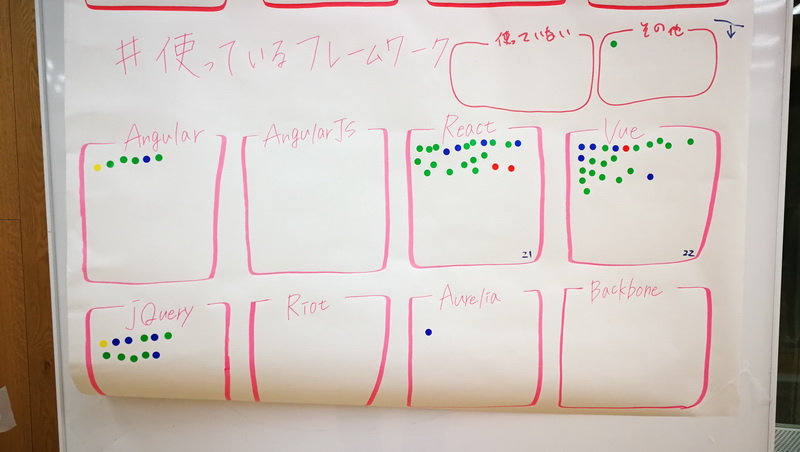 #使っているフレームワーク
使っていない
その他
Angular
AngularJS
React
Vue
21
22
jQuery
Riot
Aurelia
Backbone